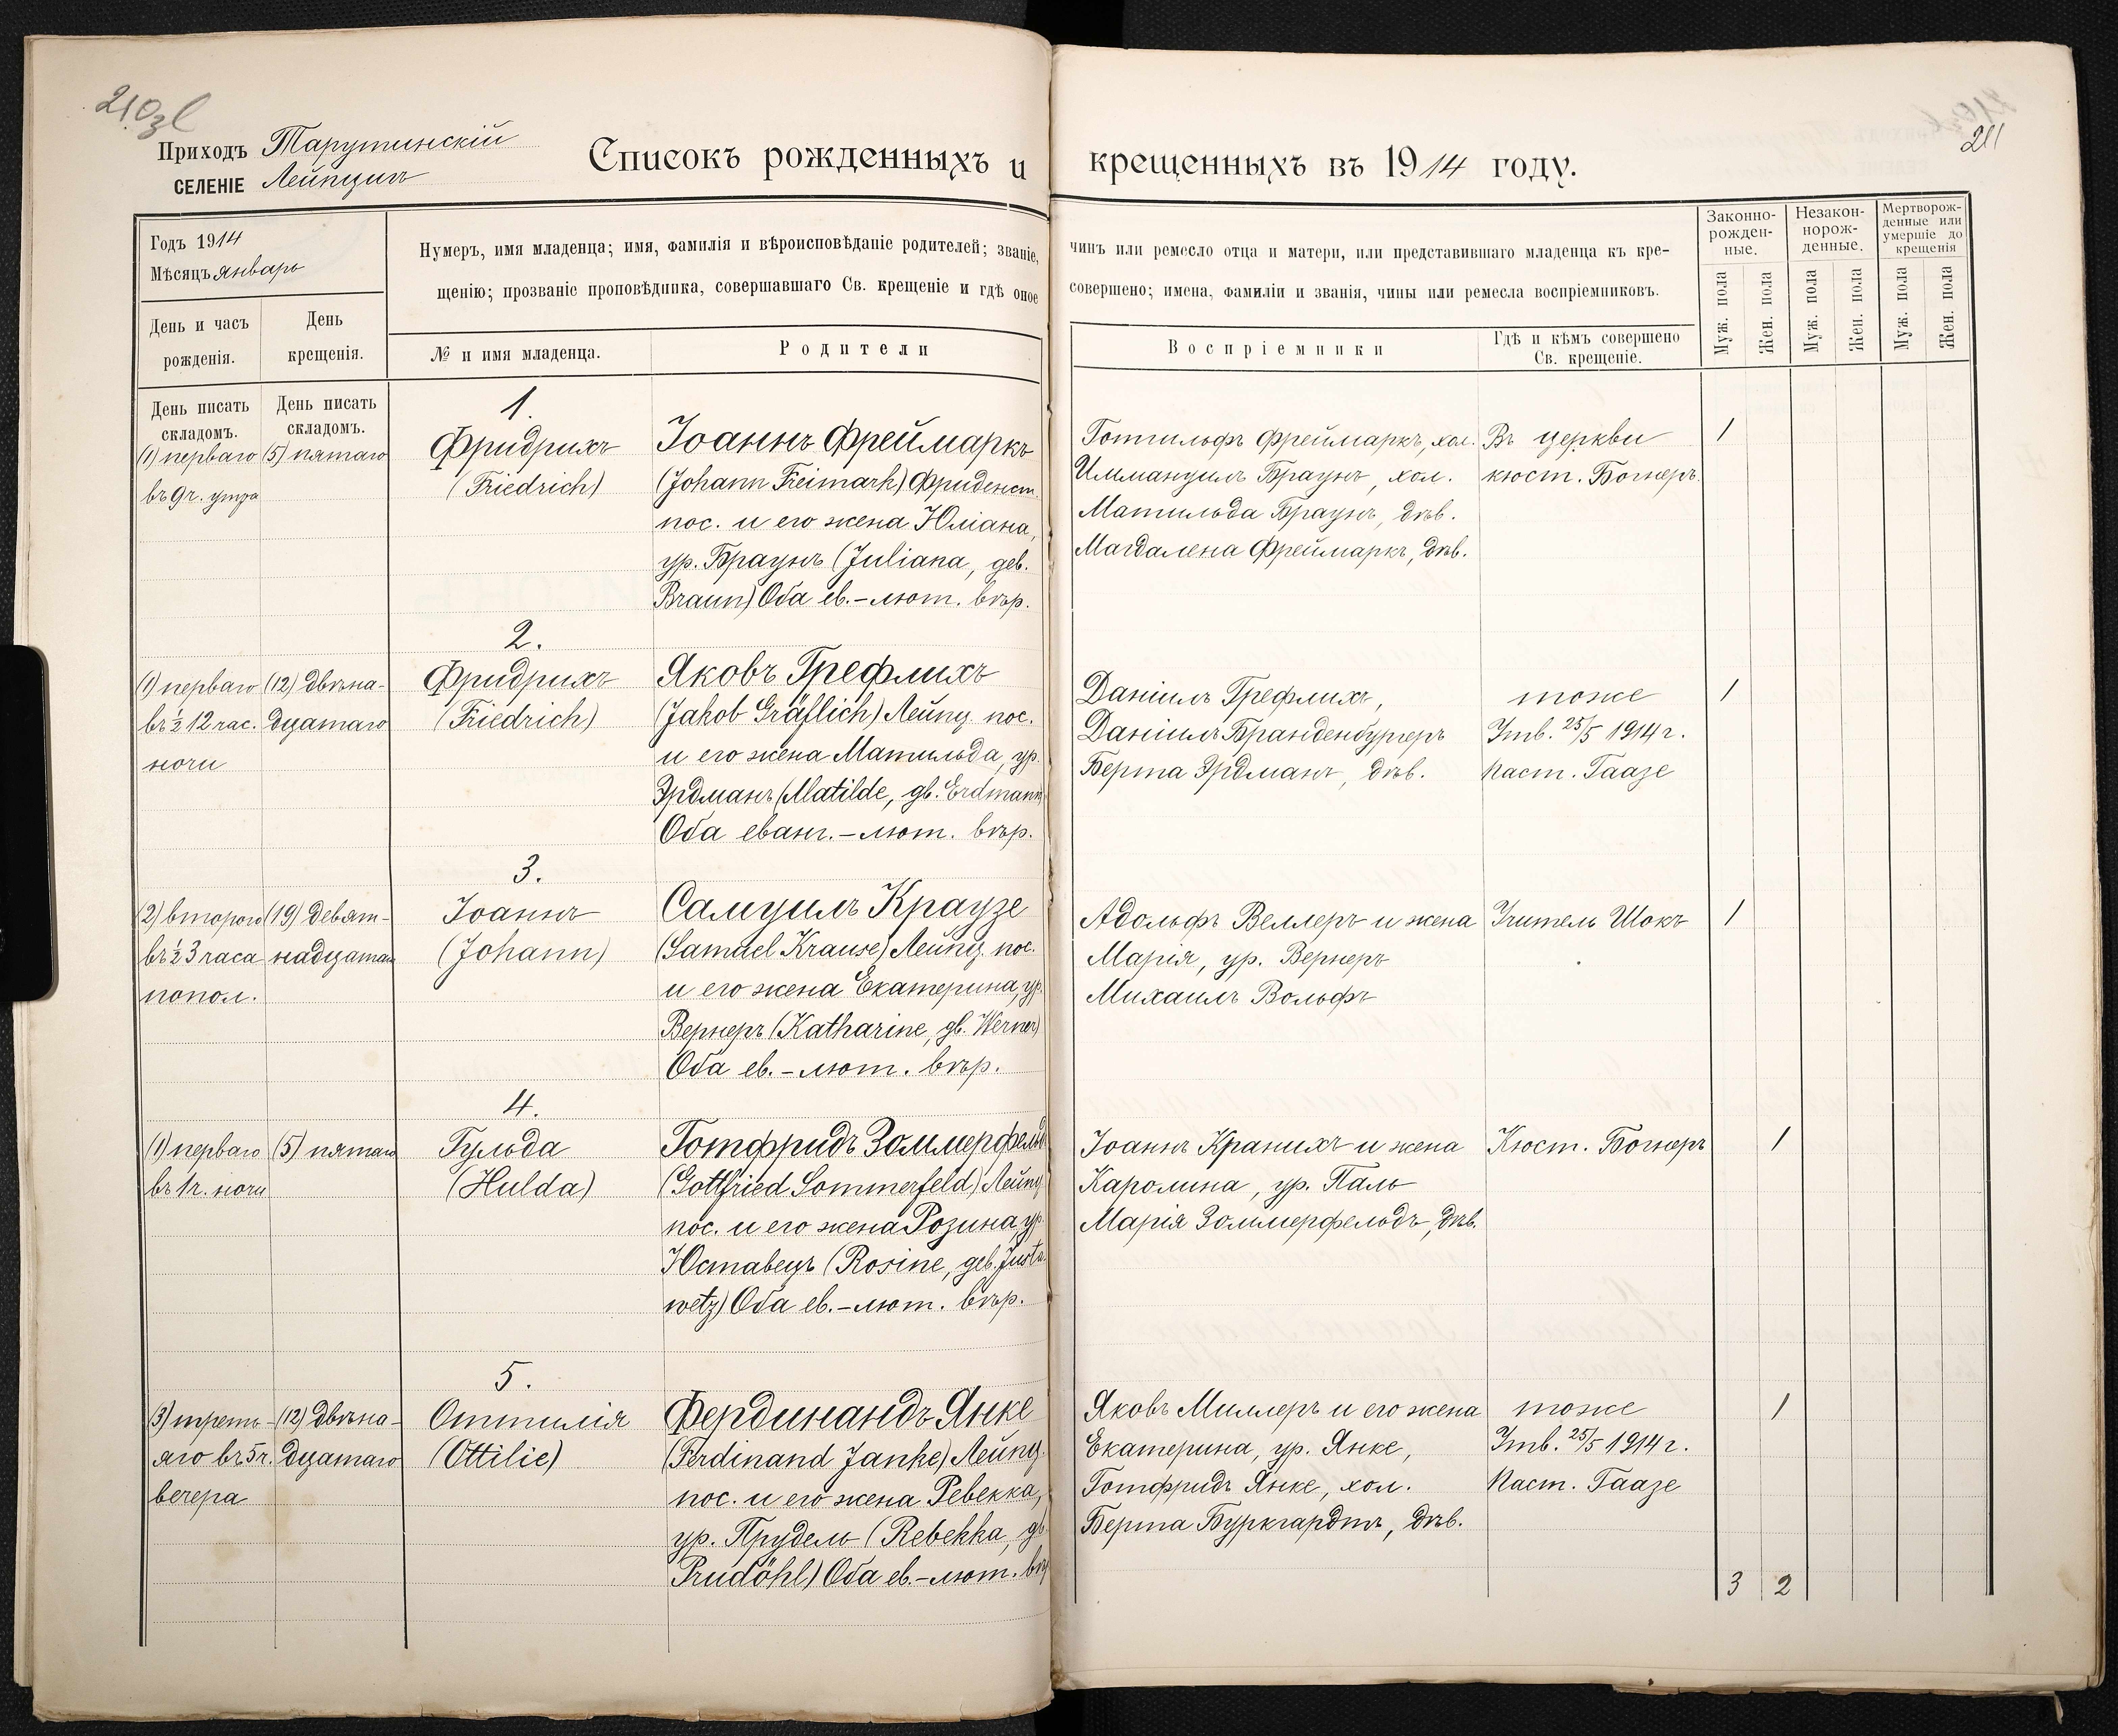 210 зб
211
Приходъ Тарутинскій
СЕЛЕНІЕ Лейпцигъ
Списокъ рожденныхъ и крещенныхъ въ 1914 году.
Годъ 1914
Мѣсяцъ январь
День и часъ рожденія.
День крещенія.
Нумеръ, имя младенца; имя, фамилія и вѣроисповѣданіе родителей; званіе, чинъ или ремесло отца и матери, или представившаго младенца къ кре-
щенію; прозваніе проповѣдника, совершавшаго Св. крещеніе и гдѣ оное совершено; имена, фамиліи и званія, чины или ремесла воспріемниковъ.
№ и имя младенца.
Родители
Воспріемники
Гдѣ и кѣмъ совершено
Св. крещеніе.
Законно-
рожден-
ные.
Незакон-
норож-
денные.
Мертворож-
денные или
умершіе до
крещенія
Муж. пола
Жен. пола
Муж. пола
Жен. пола
Муж. пола
Жен. пола
День писать
складомъ.
День писать
складомъ.
(1) перваго
въ 9 ч. утра
(5) пятаго
1.
Фридрихъ
(Friedrich)
Іоаннъ Фреймаркъ
(Johann Freimark) Фриденст.
пос. и его жена Юліана,
ур. Браунъ (Juliana, geb.
Braun) Оба ев.-лют. вѣр.
Готтильфъ Фреймаркъ, хол.
Иммануилъ Браунъ, хол.
Матильда Браунъ, дѣв.
Магдалена Фреймаркъ, дѣв.
Въ церкви
кюст. Богнеръ.
1
(1) перваго
въ ½ 12 час.
ночи
(12) двѣна-
дцатаго
2.
Фридрихъ
(Friedrich)
Яковъ Грефлихъ
(Jakob Gräflich) Лейпц. пос.
и его жена Матильда, ур.
Эрдманъ (Matilde, gb. Erdmann)
Оба еванг.-лют. вѣр.
Даніилъ Грефлихъ,
Даніилъ Бранденбургеръ
Берта Эрдманъ, дѣв.
тоже
Утв. 25/5 1914 г.
паст. Гаазе
1
(2) второго
въ ½ 3 часа
попол.
(19) девят-
надцатаго
3.
Іоаннъ
(Johann)
Самуилъ Краузе
(Samuel Krause) Лейпц. пос.
и его жена Екатерина, ур.
Вернеръ (Katharine, gb. Werner)
Оба ев.-лют. вѣр.
Адольфъ Веллеръ и жена
Марія, ур. Вернеръ
Михаилъ Вольфъ
Учитель Шокъ
1
(1) перваго
въ 1 ч. ночи
(5) пятаго
4.
Гульда
(Hulda)
Готфридъ Зоммерфельдъ
(Gottfried Sommerfeld) Лейпц.
пос. и его жена Розина, ур.
Юставецъ (Rosine, geb. Justa-
wetz) Оба ев.-лют. вѣр.
Іоаннъ Кранихъ и жена
Каролина, ур. Паль
Марія Зоммерфельдъ, дѣв.
Кюст. Богнеръ
1
(3) треть-
яго въ 5 ч.
вечера
(12) двѣна-
дцатаго
5.
Оттилія
(Ottilie)
Фердинандъ Янке
(Ferdinand Janke) Лейпц.
пос. и его жена Ревекка,
ур. Прудель (Rebekka, gb.
Prudöhl) Оба ев.-лют. вѣр
Яковъ Миллеръ и его жена
Екатерина, ур. Янке,
Готфридъ Янке, хол.
Берта Буркгардтъ, дѣв.
тоже
Утв. 25/5 1914 г.
Паст. Гаазе
1
3 2